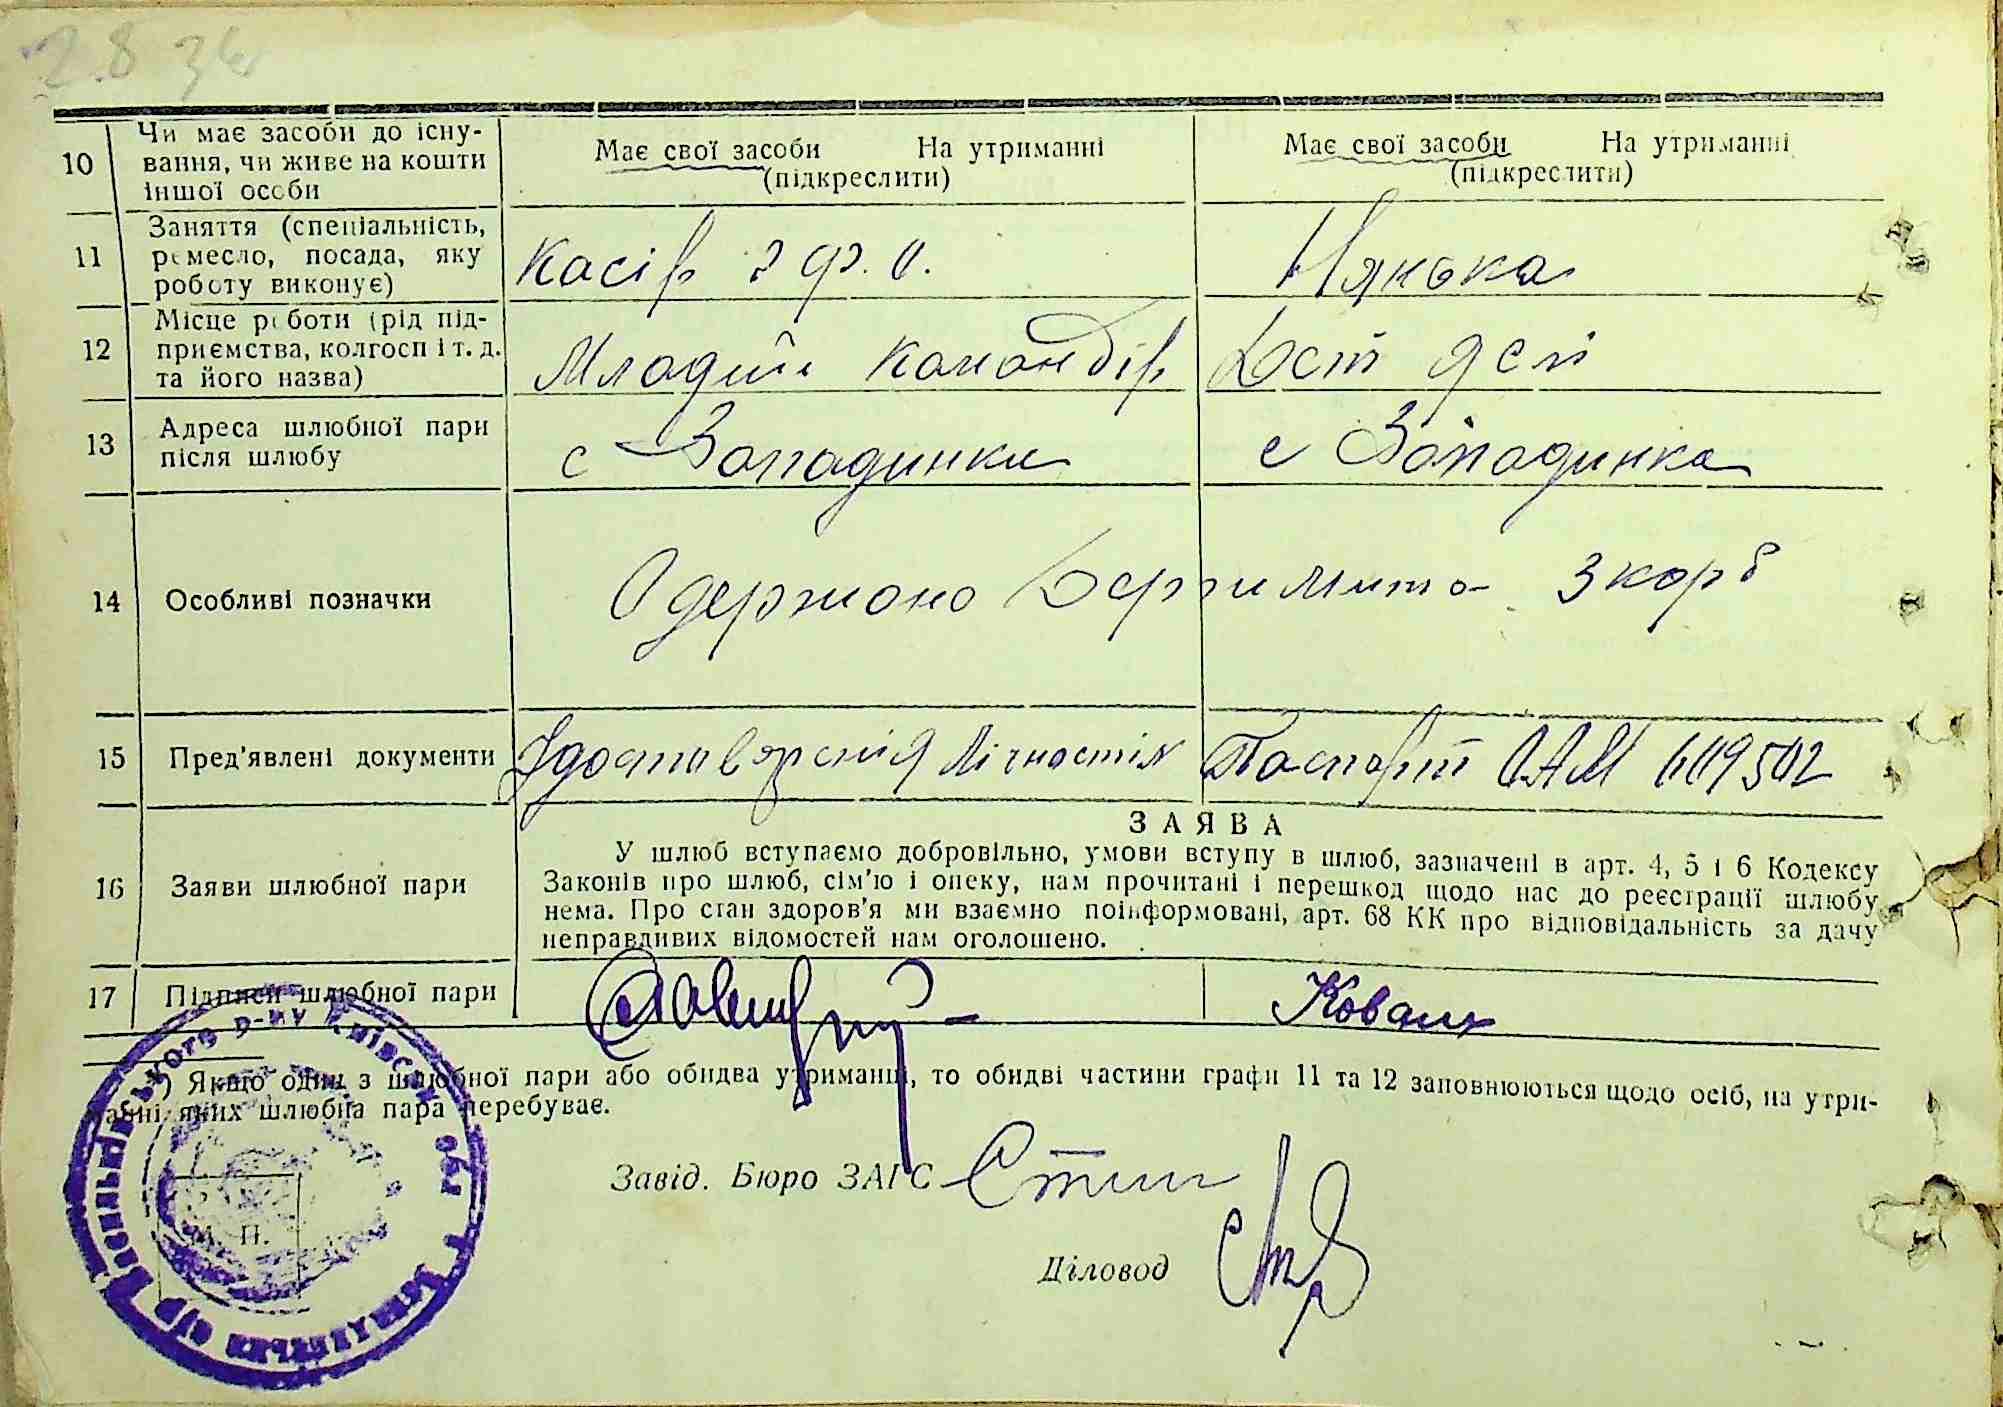 2.8 36
10
Чи має засоби до існу-
вання, чи живе на кошти
іншої особи
Має свої засоби На утриманні
(підкреслити)
Має свої засоби На утриманні
(підкреслити)
11
Заняття (спеціальність,
ремесло, посада, яку
роботу виконує)
Касір
Нянька
12
Місце роботи (рід під-
приємства, колгосп і т. д.
та його назва)
Младший командір
13
Адреса шлюбної пари
після шлюбу
с Западинка
с Западинка
14
Особливі позначки
Одержано 3 карб
15
Пред'явлені документи
Удоставерения Лічності
Паспорт 609502
16
Заяви шлюбної пари
ЗАЯВА
У шлюб вступаємо добровільно, умови вступу в шлюб, зазначені в арт. 4, 5 і 6 Кодексу
Законів про шлюб, сім'ю і опеку, нам прочитані і перешкод щодо нас до реєстрації шлюбу
нема. Про стан здоров'я ми взаємно поінформовані, арт. 68 КК про відповідальність за дачу
неправдивих відомостей нам оголошено.
17
Підписи шлюбної пари
Ковалх
) Якщо один з шлюбної пари або обидва утриманці, то обидві частини графи 11 та 12 заповнюються щодо осіб, на утри-
манні яких шлюбна пара перебуває.
Завід. Бюро ЗАГС
Діловод
М. П.
ського р-ну Київськ обл